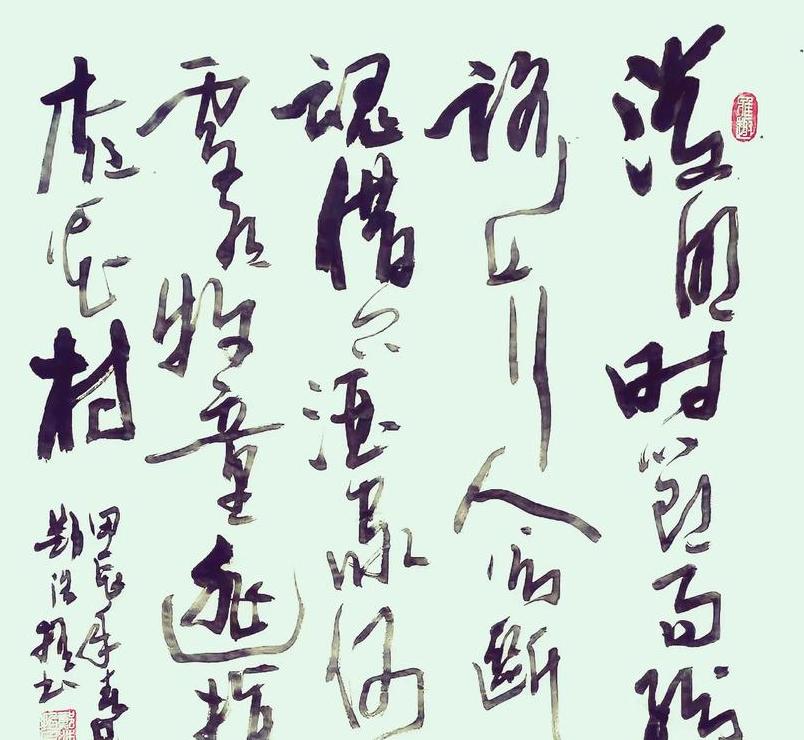 清明时节雨紛
路上行人欲斷
魂借问酒家何
處有牧童遥指
杏花村
甲辰年春日
书